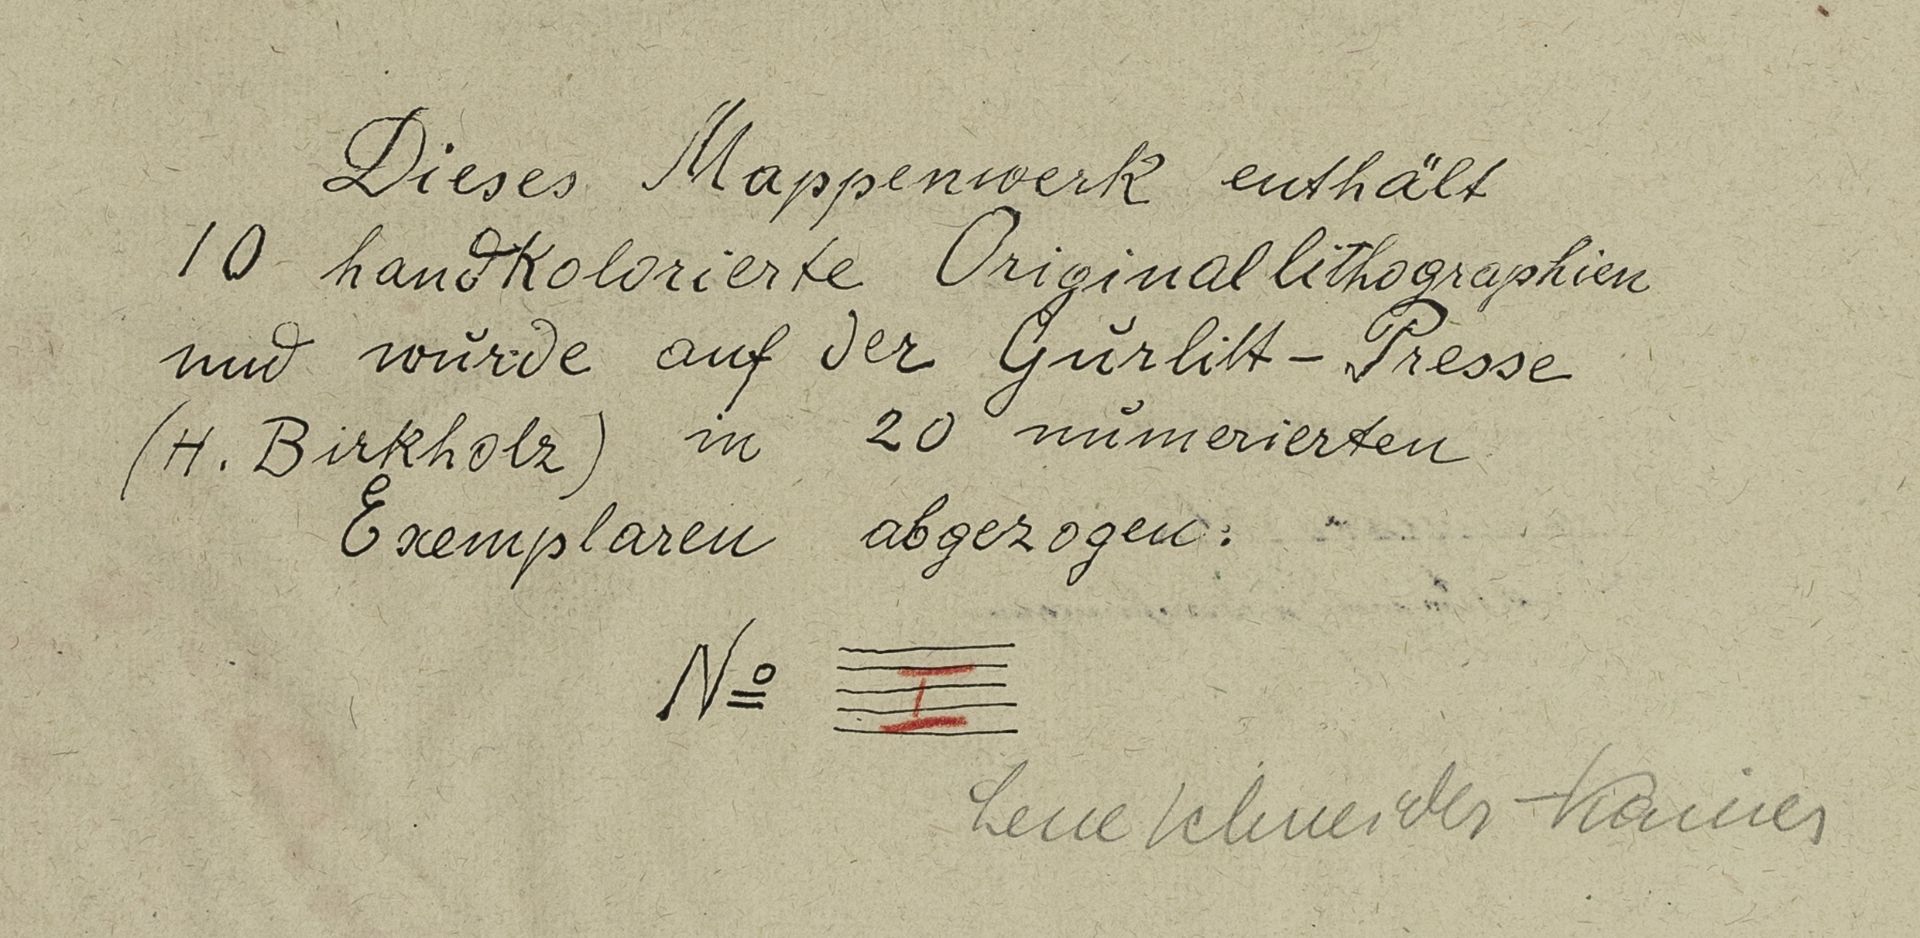 Dieses Mappenwerk enthält
10 handkolorierte Originallithographien
und wurde auf der Gurlitt-Presse
(H. Birkholz) in 20 numerierten
Exemplaren abgezogen:
No I
Lene Schneider-Kainer